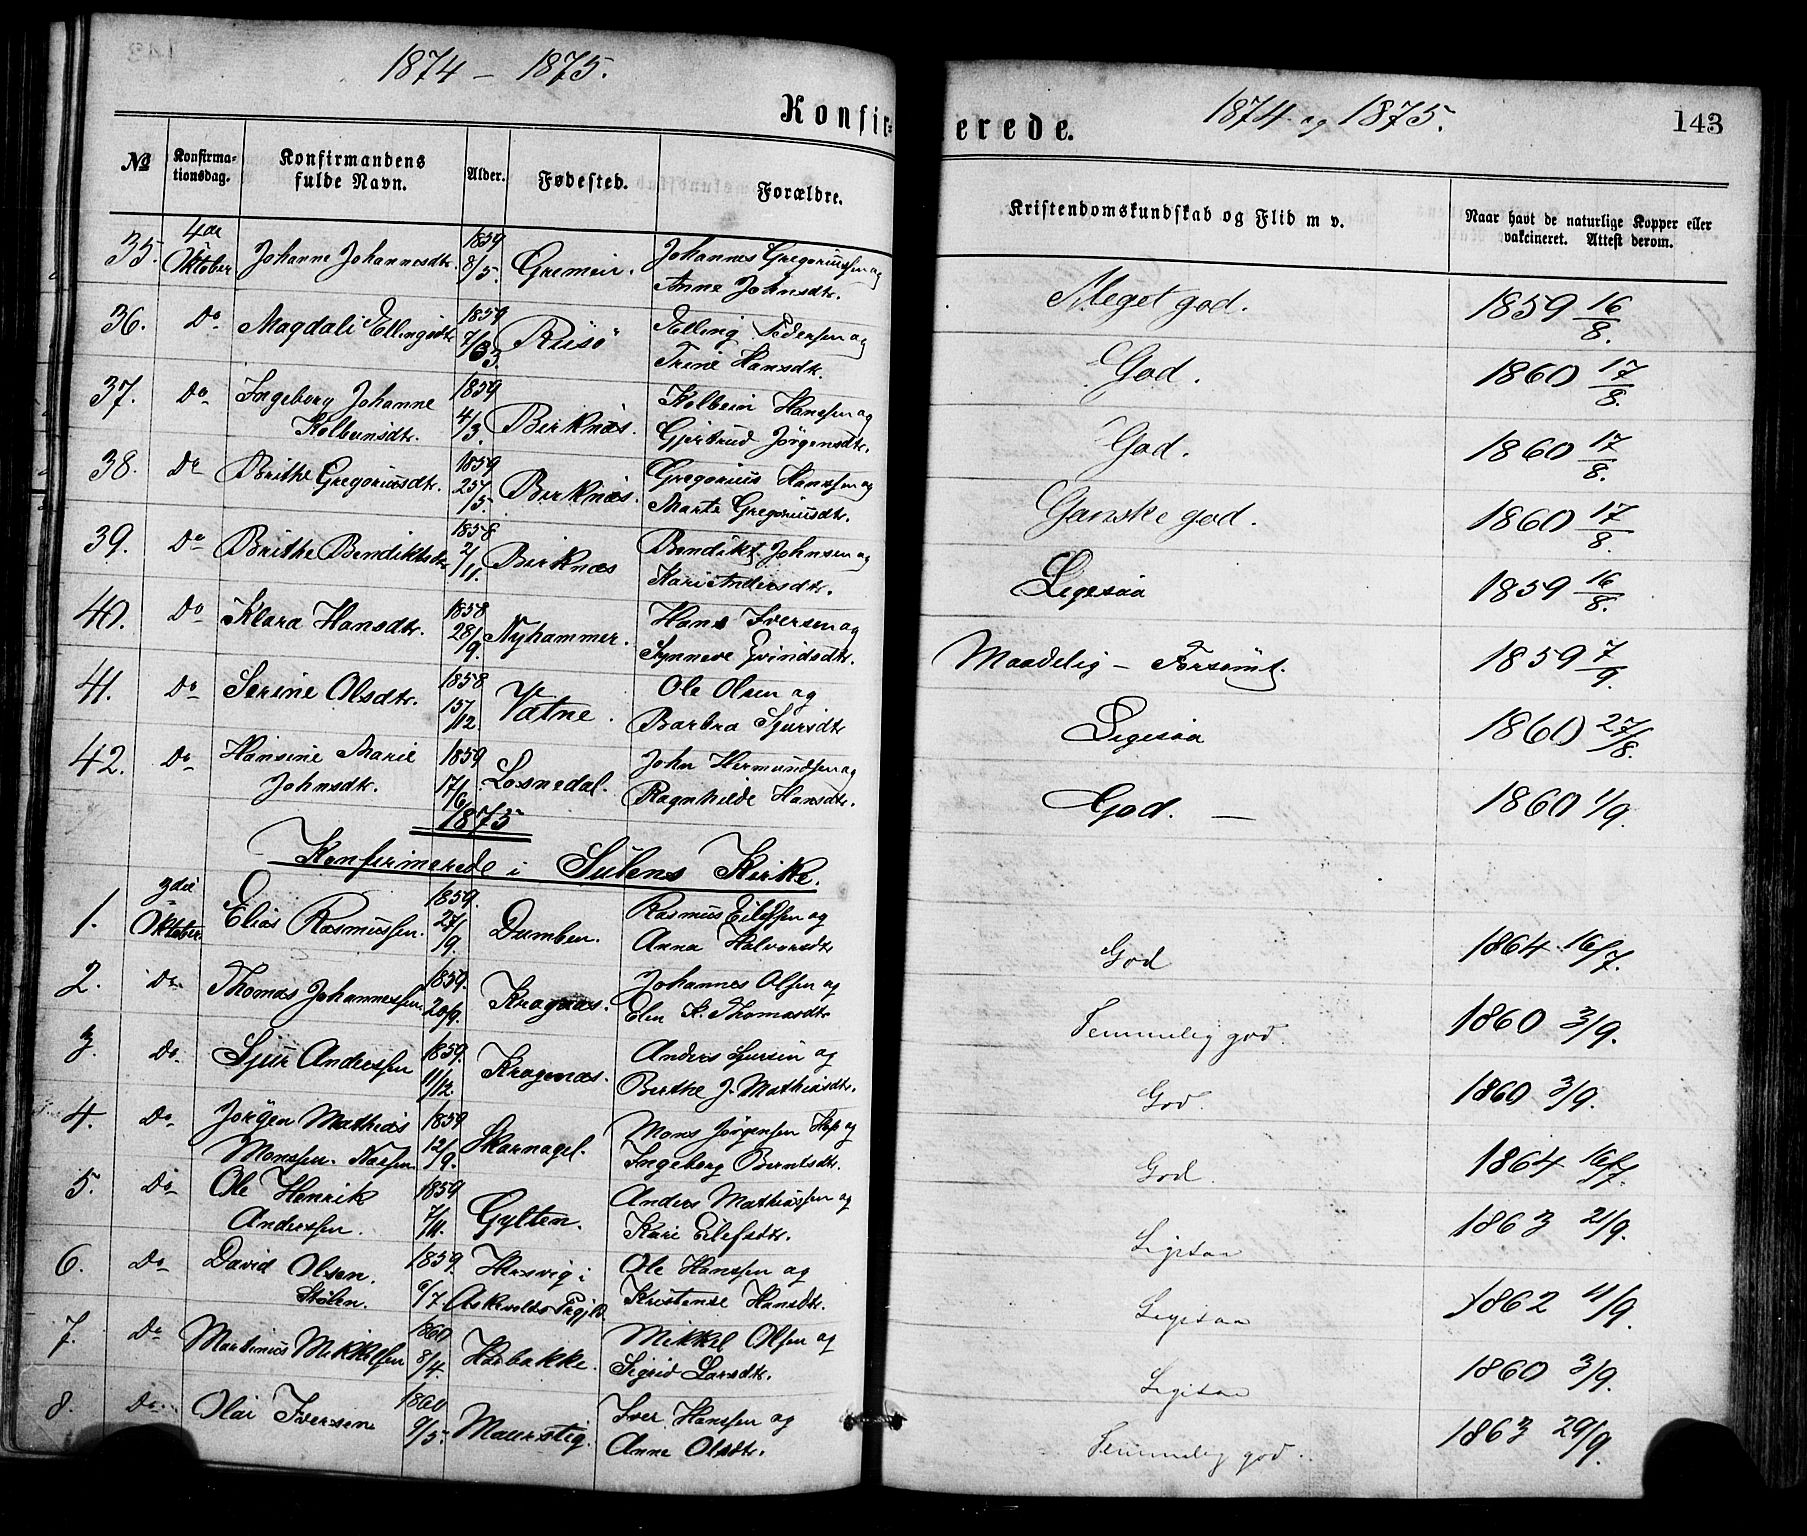 1874 – 1875.
Konfir=
№
Konfirma-
tionsdag.
Konfirmandens
fulde Navn.
Alder.
Fødested.
Forældre.
35. 4de Oktober Johanne Johannesdtr. 1859 8/5. Gremein. Johannes Gregoriussen og
Anne Johnsdtr.
36. Do Magdali Ellingsdtr 1859 7/3. Risö Elling Pedersen og
Trine Hansdtr.
37. Do Ingeborg Johanne 1859 4/3. Birknæs. Kolbein Hanssen og
Kolbeinsdtr. Gjertrud Jörgensdtr.
38. Do Brithe Gregoriusdtr. 1859 25/5. Birknæs. Gregorius Hanssen og
Marte Gregoriusdtr.
39. Do Brithe Bendiktsdtr 1858 2/11. Birknæs Bendikt Johnsen og
Kari Andersdtr.
40. Do Klara Hansdtr. 1858 28/9. Nyhammer. Hans Iversen og
Synneve Evindsdtr.
41. Do Serine Olsdtr. 1858 15/12 Vatne. Ole Olsen og
Barbra Sjursdtr
42. Do Hansine Marie 1859 17/6 Losnedal. John Hermundsen og
Johnsdtr. Ragnhilde Hansdtr.
1875
Konfirmerede i Sulens Kirke.
1. 3die Oktober. Elias Rasmussen. 1859. 27/9. Dumben. Rasmus Eilefsen og
Anna Halvorsdtr
2. Do. Thomas Johannessen 1859. 20/9. Kragnæs. Johannes Olsen og
Elen K. Thomasdtr
3. Do. Sjur Anderssen 1859. 11/12. Kragenæs. Anders Sjursen og
Birthe J. Mathiasdtr.
4. Do. Jörgen Mathias 1859 12/9. Skarnagel. Mons Jörgensen Hop og
Monssen. Ingeborg Berntsdtr.
5. Do Ole Henrik 1859 7/11. Gylten. Anders Mathiassen og
Anderssen. Kari Eilefsdtr.
6. Do David Olsen. 1859. 6/7 Hersvig i Ole Hanssen og
Stölen. Askevolds Prgjld. Kristense Hansdtr.
7. Do Martinus Mikkelsen 1860 8/4. Haabakke. Mikkel Olsen og
Sigrid Larsdtr.
8. Do. Olai Iversen 1860 9/5. Maurstig. Iver Hanssen og
Anne Olsdtr.
erede.
1874 og 1875.
143
Kristendomskundskab og Flid m v.
Naar havt de naturlige Kopper eller
vakcineret. Attest derom.
Meget god. 1859 16/8.
God. 1860 17/8.
God. 1860 17/8.
Ganske god. 1860 17/8.
Ligesaa 1859 16/8.
Maadelig – Forsömt. 1859 7/9.
Ligesaa 1860 27/8.
God. — 1860 1/9.
God 1864 16/7.
Temmelig god. 1860 3/9.
God. 1860 3/9.
God. 1864 16/7.
Ligesaa 1863 21/9.
Ligesaa 1862 11/9.
Ligesaa 1860 3/9.
Temmelig god. 1863 29/9.